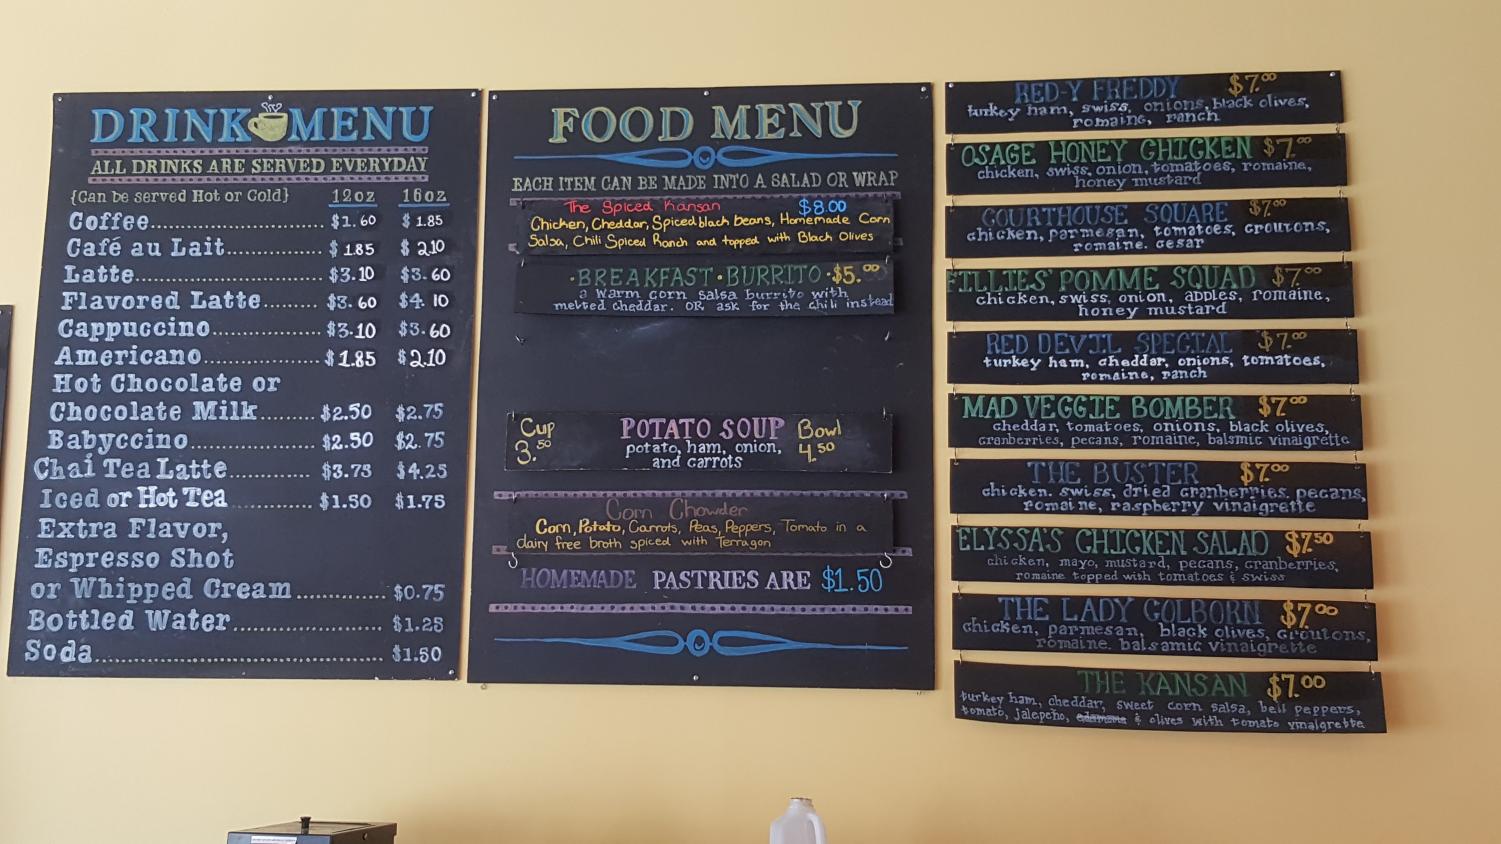 DRINK MENU
ALL DRINKS ARE SERVED EVERYDAY
{Can be served Hot or Cold} 12oz 16oz
Coffee $1.60 $1.85
Café au Lait $1.85 $2.10
Latte $3.10 $3.60
Flavored Latte $3.60 $4.10
Cappuccino $3.10 $3.60
Americano $1.85 $2.10
Hot Chocolate or
Chocolate Milk $2.50 $2.75
Babyccino $2.50 $2.75
Chai Tea Latte $3.75 $4.25
Iced or Hot Tea $1.50 $1.75
Extra Flavor,
Espresso Shot
or Whipped Cream $0.75
Bottled Water $1.25
Soda $1.50
FOOD MENU
EACH ITEM CAN BE MADE INTO A SALAD OR WRAP
The Spiced Kansan $8.00
Chicken, Cheddar, Spiced black beans, Homemade Corn
Salsa, Chili Spiced Ranch and topped with Black Olives
·BREAKFAST·BURRITO·$5.00
a warm corn salsa burrito with
melted cheddar. OR ask for the chili instead
Cup POTATO SOUP Bowl
3.50 potato, ham, onion, 4.50
and carrots
Corn Chowder
Corn, Potato, Carrots, Peas, Peppers, Tomato in a
dairy free broth spiced with Terragon
HOMEMADE PASTRIES ARE $1.50
RED-Y FREDDY $7.00
turkey ham, swiss, onions, black olives,
romaine, ranch
OSAGE HONEY CHICKEN $7.00
chicken, swiss, onion, tomatoes, romaine,
honey mustard
COURTHOUSE SQUARE $7.00
chicken, parmesan, tomatoes, croutons,
romaine. cesar
FILLIES' POMME SQUAD $7.00
chicken, swiss, onion, apples, romaine,
honey mustard
RED DEVIL SPECIAL $7.00
turkey ham, cheddar, onions, tomatoes,
romaine, ranch
MAD VEGGIE BOMBER $7.00
cheddar, tomatoes, onions, black olives,
cranberries, pecans, romaine, balsmic vinaigrette
THE BUSTER $7.00
chicken. swiss, dried cranberries, pecans,
romaine, raspberry vinaigrette
ELYSSA'S CHICKEN SALAD $7.50
chicken, mayo, mustard, pecans, cranberries,
romaine topped with tomatoes & swiss
THE LADY GOLBORN $7.00
chicken, parmesan, black olives, croutons,
romaine. balsamic vinaigrette
THE KANSAN $7.00
turkey ham, cheddar, sweet corn salsa, bell peppers,
tomato, jalepeño, & olives with tomato vinaigrette